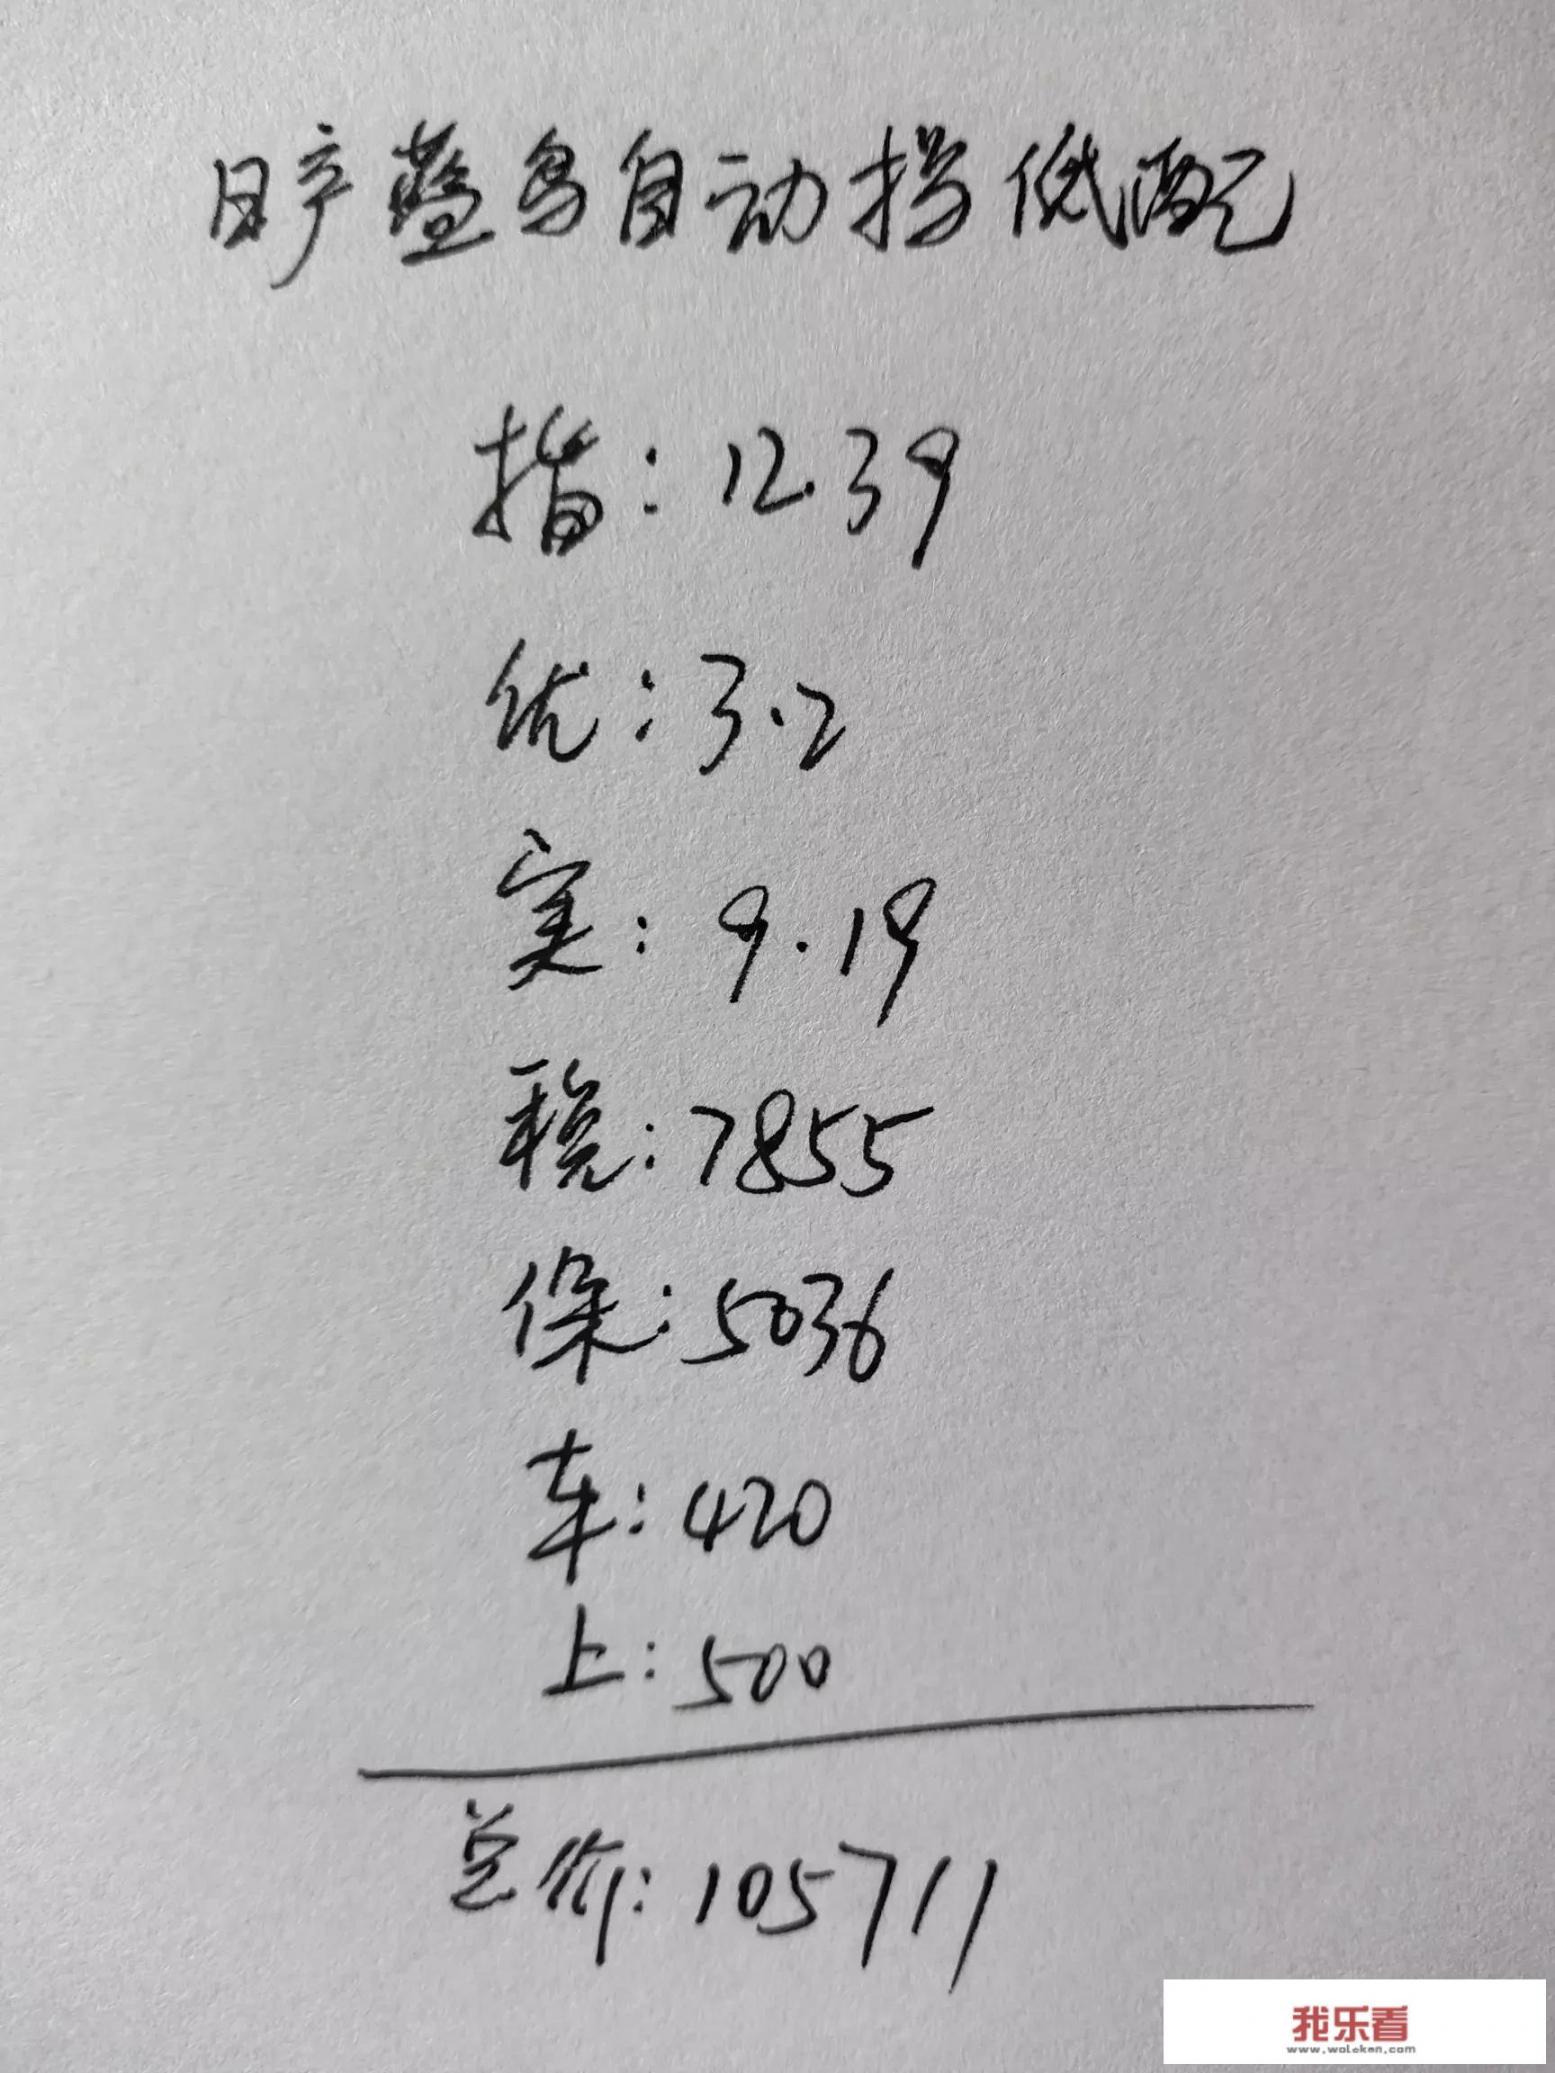 日产蓝鸟自动挡低配
指:12.39
优:3.2
实:9.19
税:7855
保:5036
车:420
上:500
总价:105711
我乐看
www.woleken.com